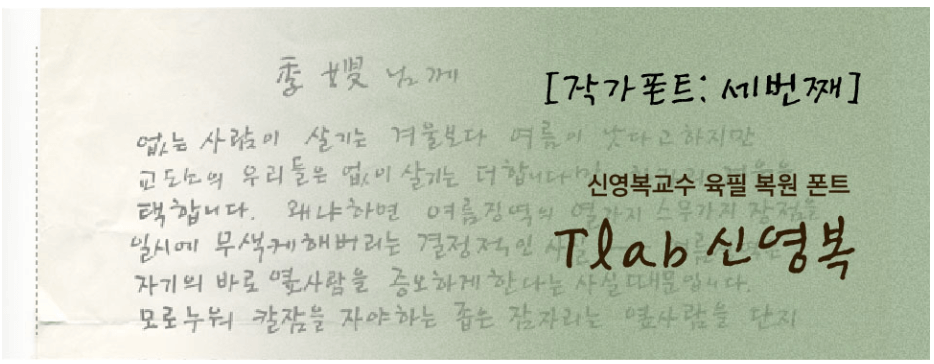 季嫂 님께
[작가폰트: 세번째]
없는 사람이 살기는 겨울보다 여름이 낫다고하지만
교도소의 우리들은 없이 살기는 더합니다만 겨울을
신영복교수 육필 복원 폰트
택합니다. 왜냐하면 여름징역의 열가지 스무가지 장점을
일시에 무색케해버리는 결정적인 사실
Tlab 신영복
자기의 바로 옆사람을 증오하게 한다는 사실 때문입니다.
모로누워 칼잠을 자야하는 좁은 잠자리는 옆사람을 단지